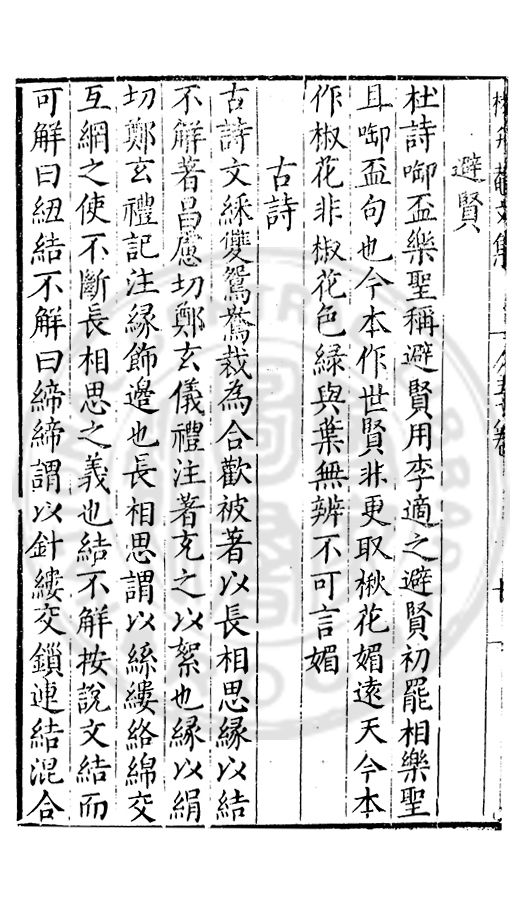 避賢
杜詩啣盃樂聖稱避賢用李適之避賢初罷相樂聖
且啣盃句也今本作世賢非更取楸花媚遠天今本
作椒花非椒花色緑與葉無辨不可言媚
古詩
古詩文綵雙鴛鴦裁為合歡被著以長相思緣以結
不解著昌慮切鄭玄儀禮注著充之以絮也緣以絹
切鄭玄禮記注緣飾邊也長相思謂以絲縷絡綿交
互網之使不斷長相思之義也結不解按說文結而
可解曰紐結不解曰締締謂以針縷交鎖連結混合